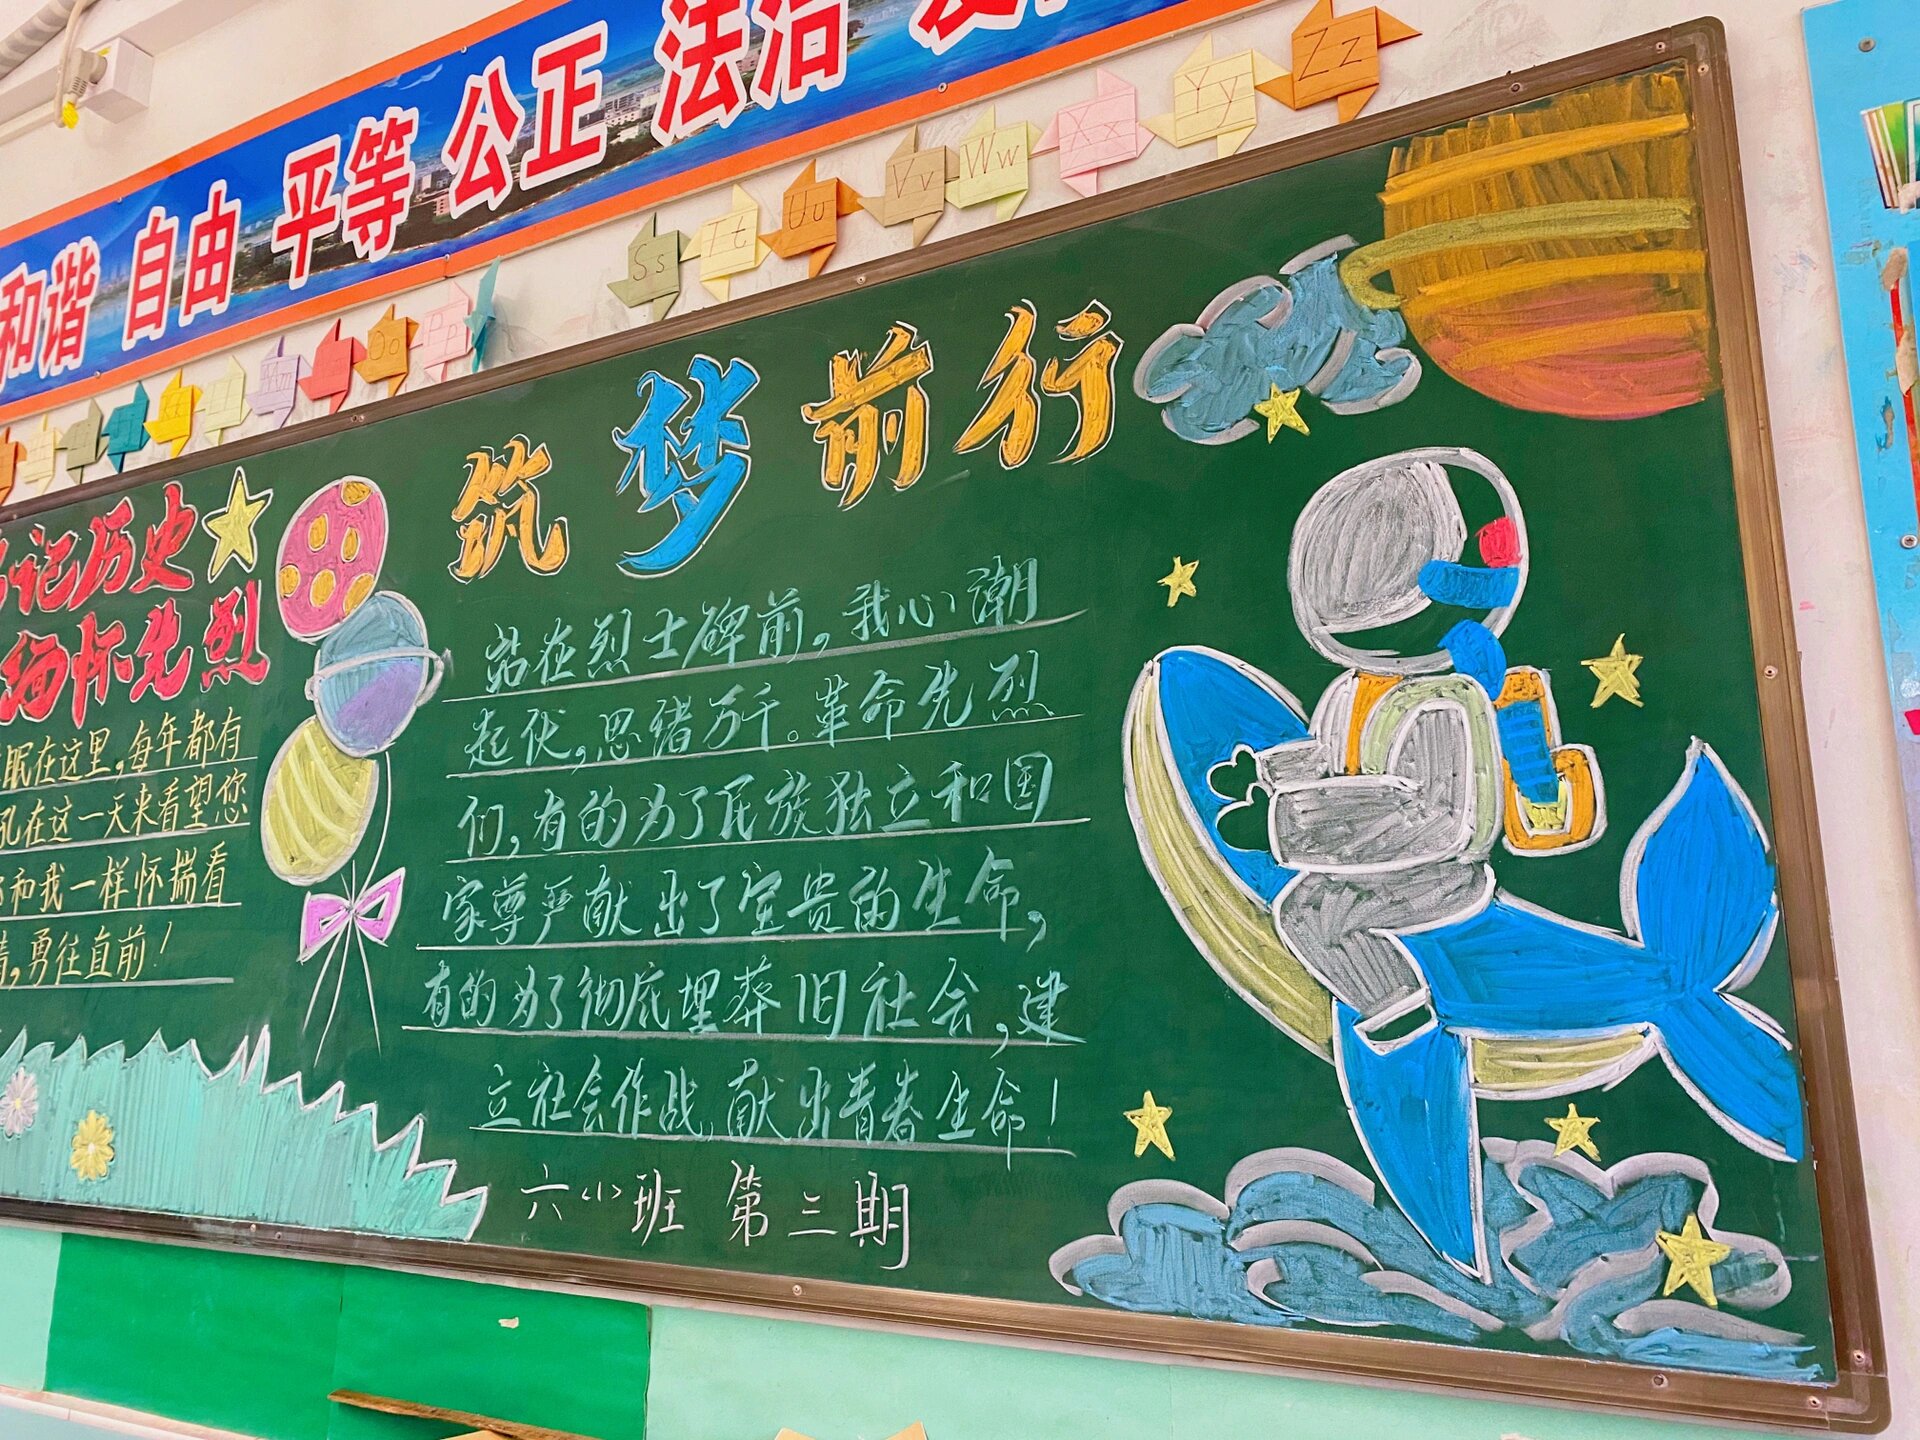 和谐 自由 平等 公正 法治
Zz
Yy
Xx
Ww
Vv
Uu
Tt
Ss
Pp
Oo
记历史
缅怀先烈
眠在这里,每年都有
在这一天来看望您
和我一样怀揣着
,勇往直前!
筑梦前行
站在烈士碑前,我心潮
起伏,思绪万千。革命先烈
们,有的为了民族独立和国
家尊严献出了宝贵的生命,
有的为了彻底埋葬旧社会,建
立社会作战,献出青春生命!
六(1)班 第三期